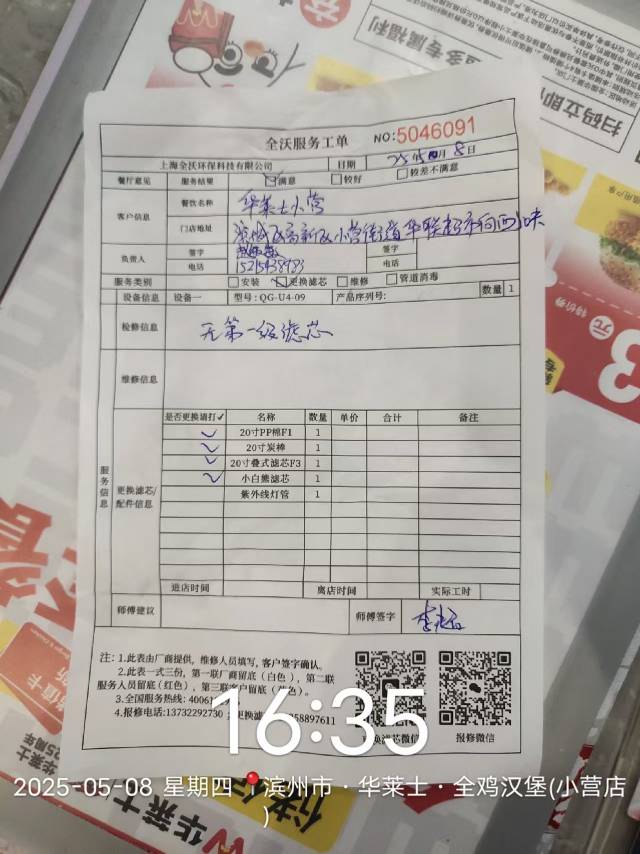 多专属福利
扫码立即
全沃服务工单
NO:5046091
上海全沃环保科技有限公司 日期 25年 月8日
餐厅意见 服务结果 满意 较好 较差不满意
客户信息 餐饮名称 华莱士小营
门店地址 滨城区高新区小营街道华联超市向西
负责人 签字 签字
电话 电话
服务类别 安装 更换滤芯 维修 管道消毒
设备信息 设备一 型号:QG-U4-09 产品序列号: 数量 1
检修信息 无第一级滤芯
维修信息
服务信息
更换滤芯/配件信息
是否更换请打✓ 名称 数量 单价 合计 备注
✓ 20寸PP棉F1 1
✓ 20寸炭棒 1
✓ 20寸叠式滤芯F3 1
✓ 小白熊滤芯 1
紫外线灯管 1
进店时间 离店时间 实际工时
师傅建议 师傅签字
注:1.此表由厂商提供,维修人员填写,客户签字确认。
2.此表一式三份,第一联厂商留底(白色),第二联
服务人员留底(红色),第三联客户留底
3.全国服务热线:4006
4.报修电话:13732292730 58897611
换滤芯微信 报修微信
16:35
2025-05-08 星期四 滨州市·华莱士·全鸡汉堡(小营店
)
华莱士